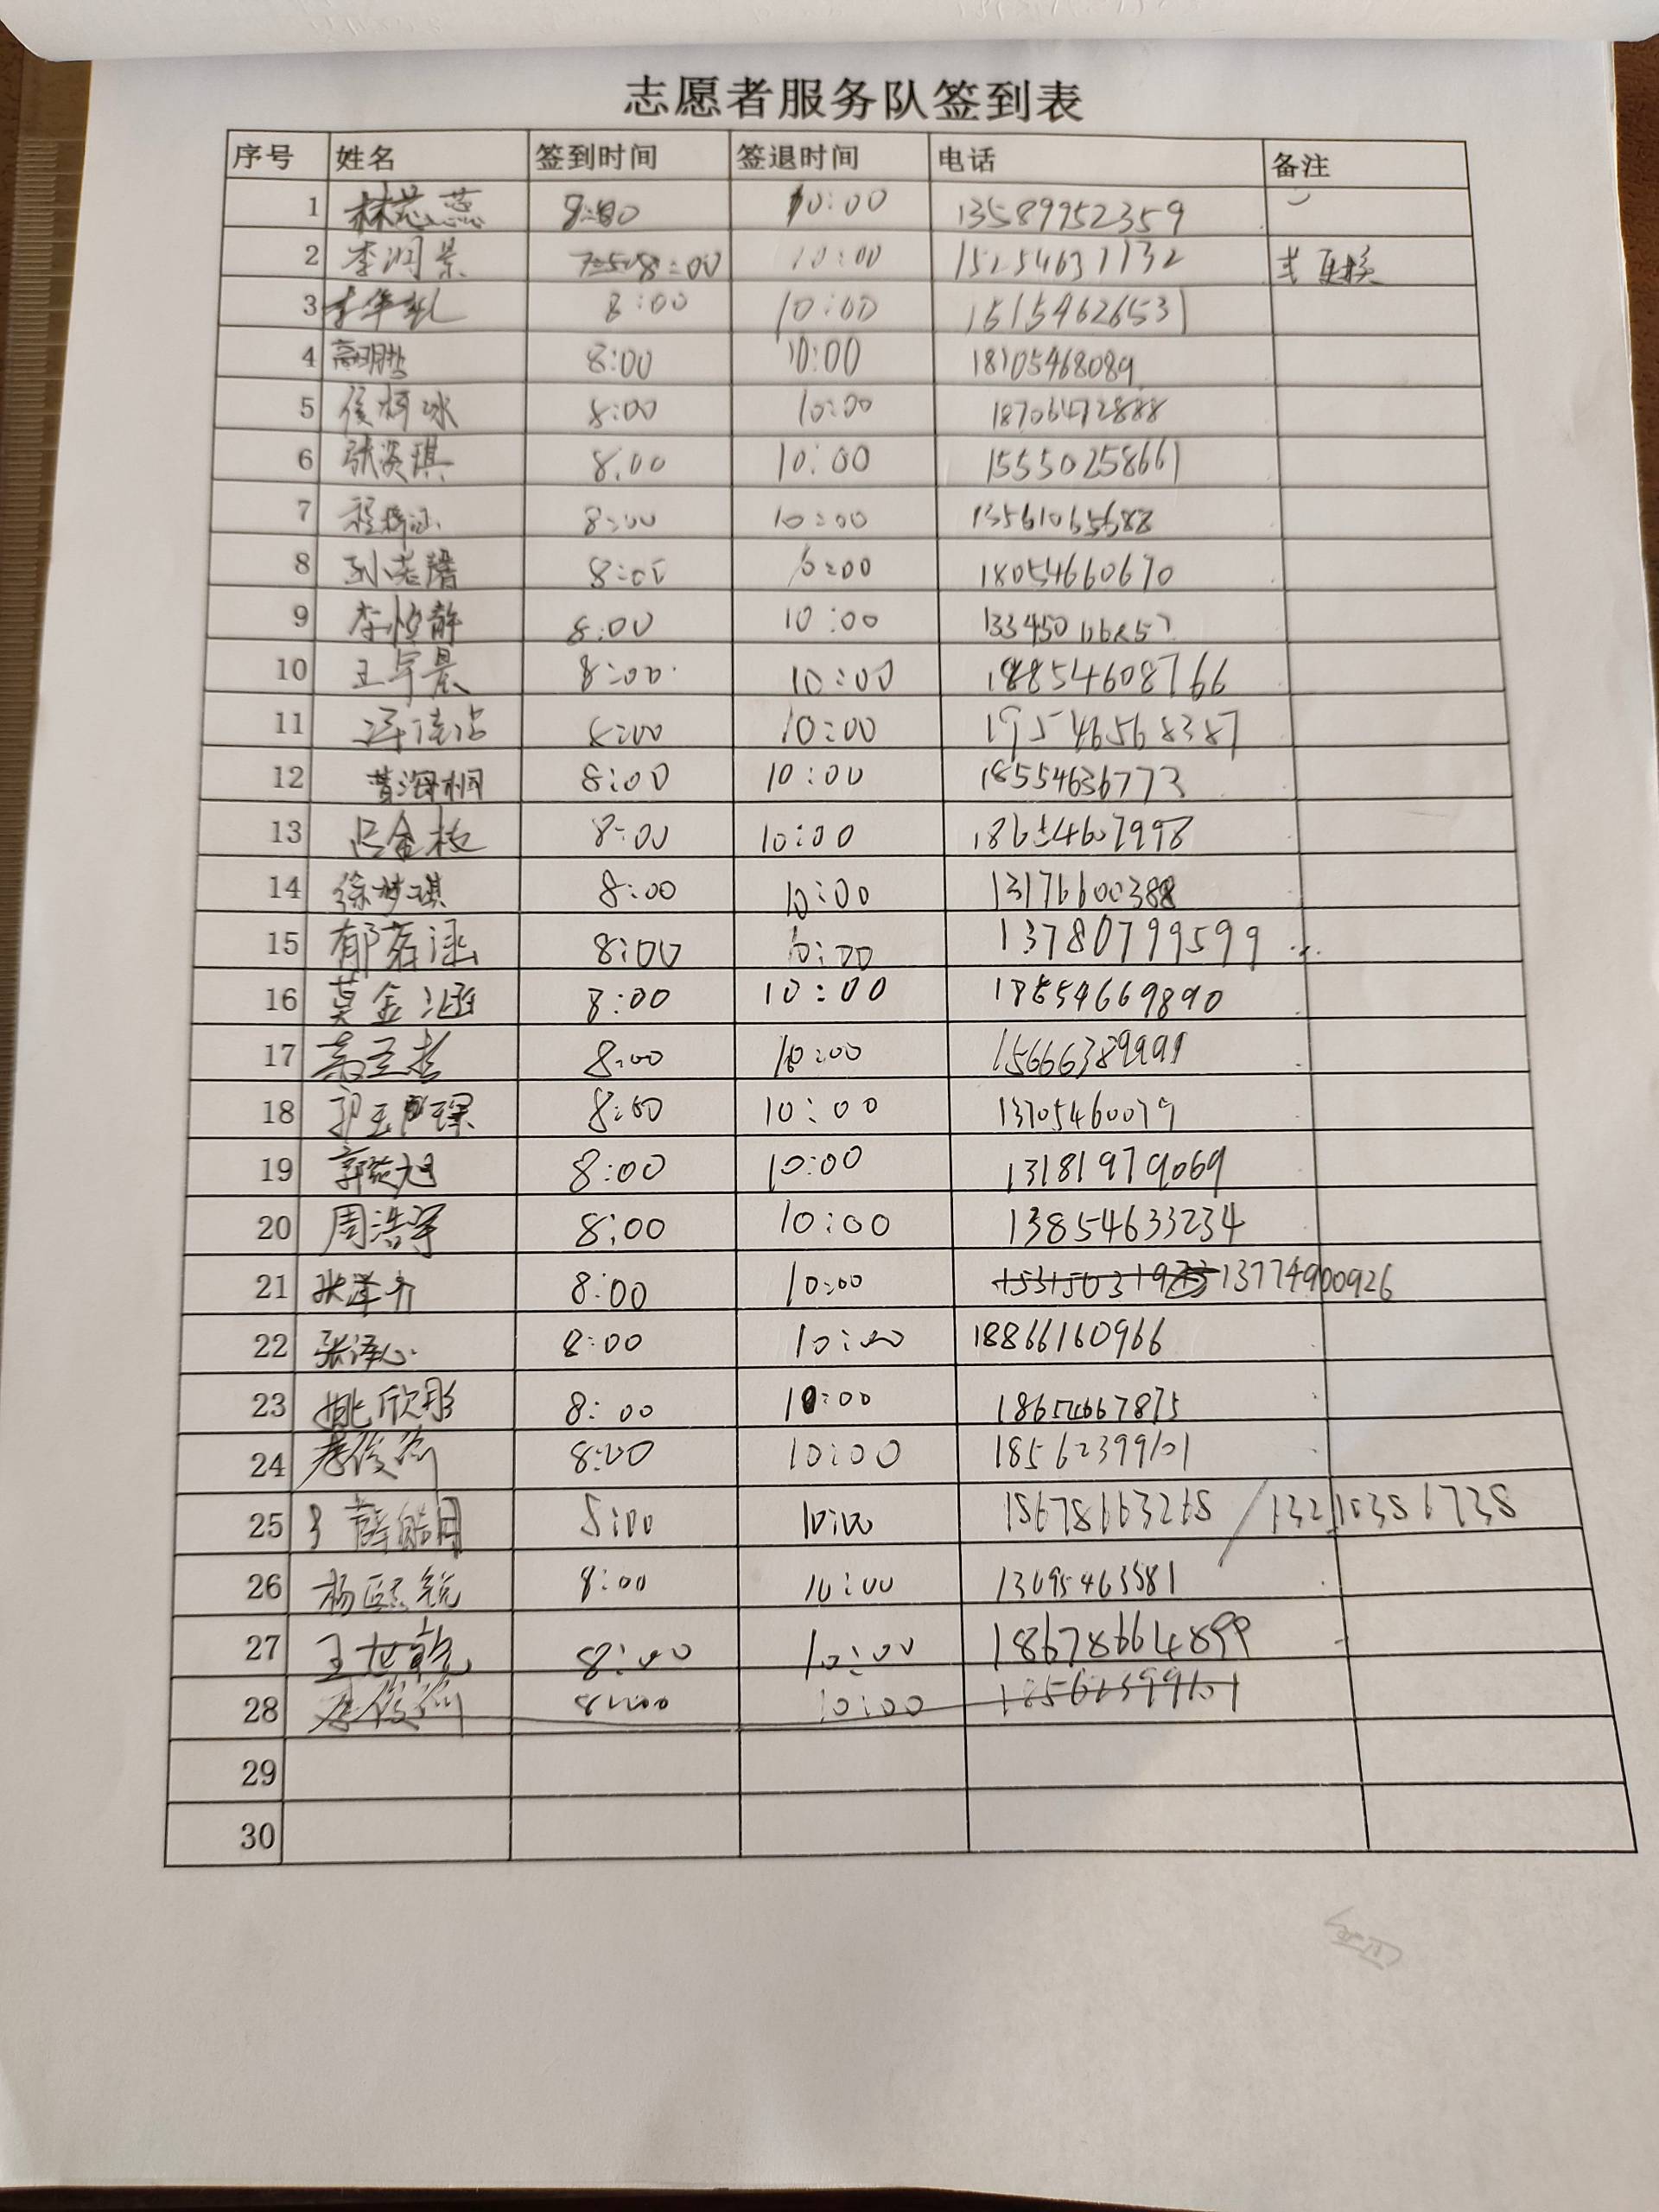 志愿者服务队签到表
序号 姓名 签到时间 签退时间 电话 备注
1 林芯蕊 8:00 10:00 13589952359
2 李润景 8:00 10:00 15254637132
3 8:00 10:00 15154626531
4 8:00 10:00 18105468089
5 侯柯冰 8:00 10:00 18706472888
6 张资琪 8:00 10:00 15550258661
7 8:00 10:00 13561065688
8 8:00 10:00 18054660670
9 李恒静 8:00 10:00
10 王宇晨 8:00 10:00 18854608766
11 8:00 10:00 195546568387
12 黄海桐 8:00 10:00 18554636773
13 吕金枝 8:00 10:00 18654607998
14 徐梦琪 8:00 10:00 13176600388
15 郁若涵 8:00 10:00 13780799599
16 莫金涵 8:00 10:00 18654669890
17 8:00 10:00 15666389991
18 8:00 10:00 13705460079
19 8:00 10:00 13181979069
20 周浩宇 8:00 10:00 13854633234
21 张泽介 8:00 10:00 15315031973 13774900926
22 张泽心 8:00 10:00 18866160966
23 姚欣彤 8:00 10:00 18654667875
24 8:00 10:00 18562399101
25 薛皓月 8:00 10:00 18678663268 / 13210386738
26 8:00 10:00 13695463581
27 王世乾 8:00 10:00 18678664899
28 8:00 10:00 18562399101
29
30